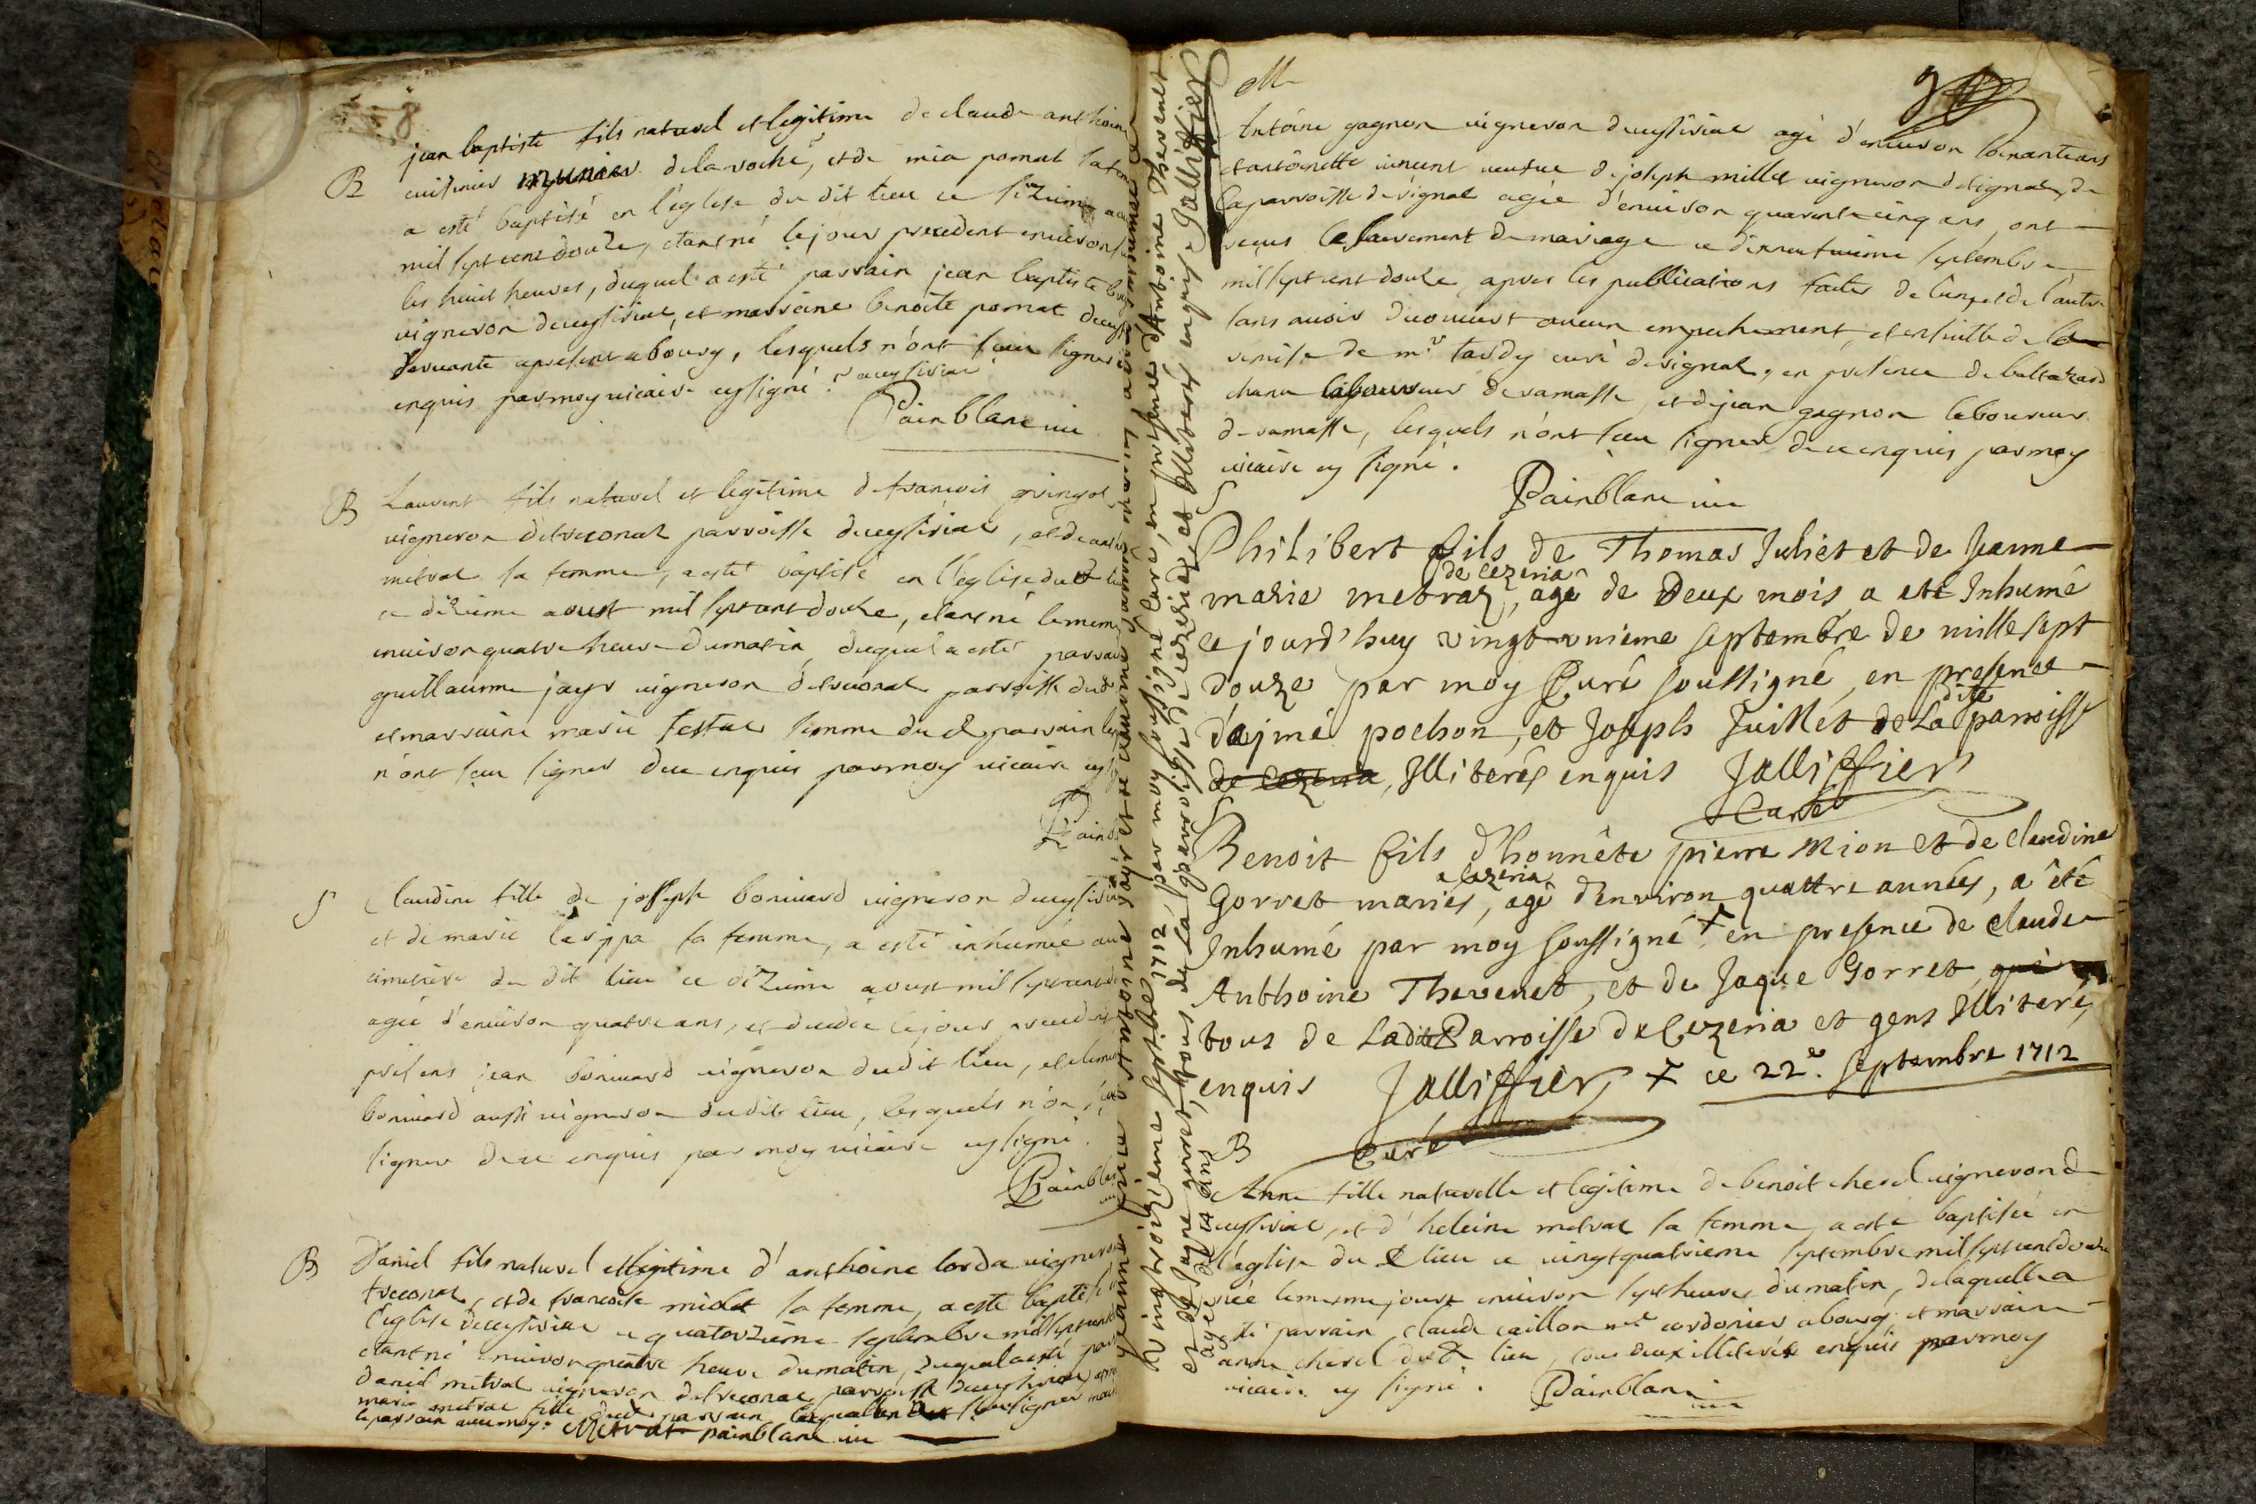 8
B
jean baptiste fils naturel et legitime de claude anthoine
cuisinier munier de la roche, et de mia pomat sa fe
a esté baptisé en l'eglise du dit lieu ce sizieme aou
mil sept cent douze, étant né le jour precedent environ
les huit heures, duquel a esté parrain jean baptiste
vigneron de ceyssiriat, et marraine benoite pomat
servante a present a bourg, lesquels n'ont sceu signer
enquis par moy vicaire cy signé.
Painblanc vic
B
Laurent fils naturel et legitime de francois
vigneron de treconat parroisse de ceyssiriat, et de
metral sa femme, a esté baptisé en l'eglise dudt
ce dizieme aoust mil sept cent douze, étant né le meme
environ quatre heure du matin, duquel a esté parrain
guillaume jayr vigneron de treconat parroisse dudt
et marraine marie festas femme dud parrain
n'ont sceu signer de ce enquis par moy vicaire cy
Painb
S
Claudine fille de joseph bonivard vigneron de ceyssiriat
et de marie sa femme, a esté inhumée au
cimetiere du dit lieu ce dizieme aoust mil sept cent
agée d'environ quatre ans, et decedée le jour precedent
presens jean bonivard vigneron dudit lieu, et
bonivard aussi vigneron dudit lieu, lesquels n'on
signer de ce enquis par moy vicaire cy signé.
Painblan
B
Daniel fils naturel et legitime d'anthoine lorda vigneron
treconat, et de francoise midat sa femme, a esté baptisé
l'eglise de ceyssiriat ce quatorzieme septembre mil sept cent
étant né environ quatre heure du matin, duquel a esté par
daniel metral vigneron de treconat parroisse de ceyssiriat
marie metral fille dud parrain signer
le parrain avec moy. Metrat painblanc vic
jeanne fille d'antoine jayr et de
ving troizieme septbre 1712 par moy soussigné curé, en presence d'Antoine Thevenet
et de Jaque gorret, tous de la parroisse de cezeriat, et illiterés enquis Jalliffier
agée de 14 ans
M
9
Antoine gagnon vigneron de ceyssiriat agé d'environ soixante ans
et antoinette veufve de joseph millet vigneron de signat, de
la parroisse de signat agée d'environ quarente cinq ans, ont
reçus le sacrement de mariage ce dixneufvieme septembre
mil sept cent douze, apres les publications faites de l'un et de l'autre
sans avoir decouvert aucun empechement, et ensuitte de la
remise de mr. tardy curé de signat, en presence de baltazard
chanu laboureur de ramasse, et de jean gagnon laboureur
de ramasse, lesquels n'ont sceu signer de ce enquis par moy
vicaire cy signé.
Painblanc vic
S
Philibert fils de Thomas Juliet et de Jeanne
marie metraz, de Cezeria agé de Deux mois a eté Inhumé
ce jourd'huy vingt-unieme septembre de mille sept
douze par moy Curé soussigné, en presence
d'ajmé pochon, et Joseph Juillet de La dite parroisse
de Cezeria, Illiterés enquis Jalliffier
Curé
S
Benoit fils d'honnête pierre Mion et de claudine
Gorret mariés, a Cezeria agé d'environ quattre années, a été
Inhumé par moy soussigné + en presence de claude
Anthoine Thevenet, et de Jaque Gorret, que
tous de Ladite Parroisse de Cezeria et gens Illiteré
enquis Jalliffier + ce 22e. septembre 1712
Curé
B
Anne fille naturelle et legitime de benoit chevel vigneron de
ceyssiriat, et d'heleine metral sa femme, a esté baptisée en
l'eglise du d lieu ce vingt quatrieme septembre mil sept cent douze
née le mesme jour environ sept heures du matin, de laquelle a
esté parrain claude caillon mre cordonier a bourg, et marraine
anne chevel dud lieu, tous deux illiterés enquis par moy
vicaire cy signé. Painblanc
vic